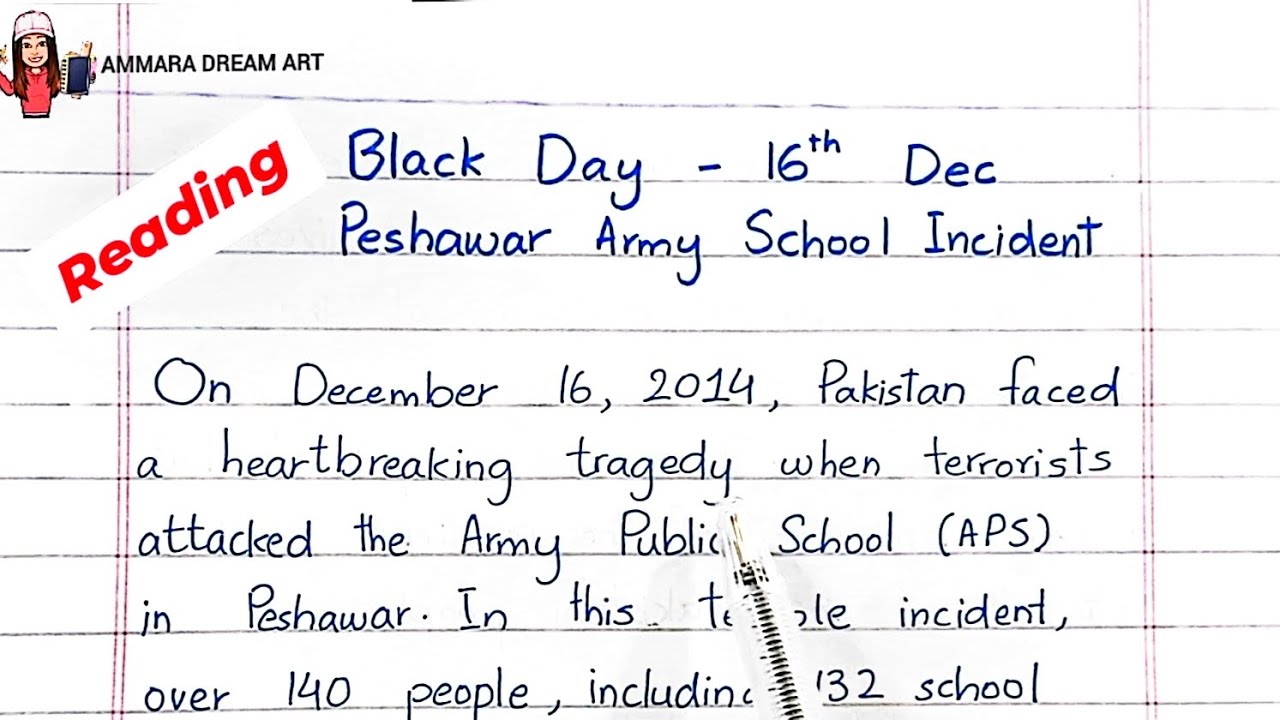 AMMARA DREAM ART
Reading
Black Day - 16th Dec
Peshawar Army School Incident
On December 16, 2014, Pakistan faced
a heartbreaking tragedy when terrorists
attacked the Army Public School (APS)
in Peshawar. In this incident,
over 140 people, including 132 school